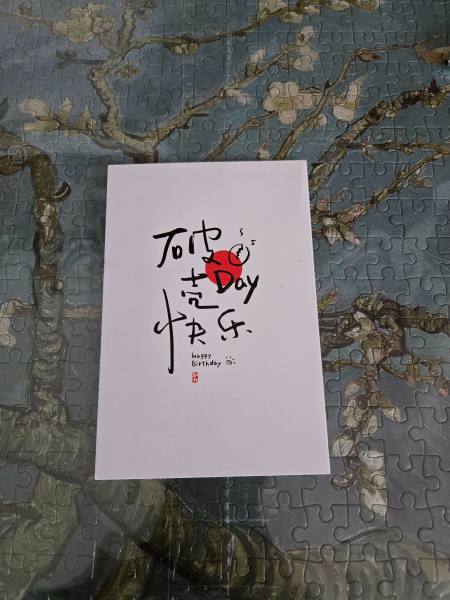 破
壳Day
快乐
happy
Birthday